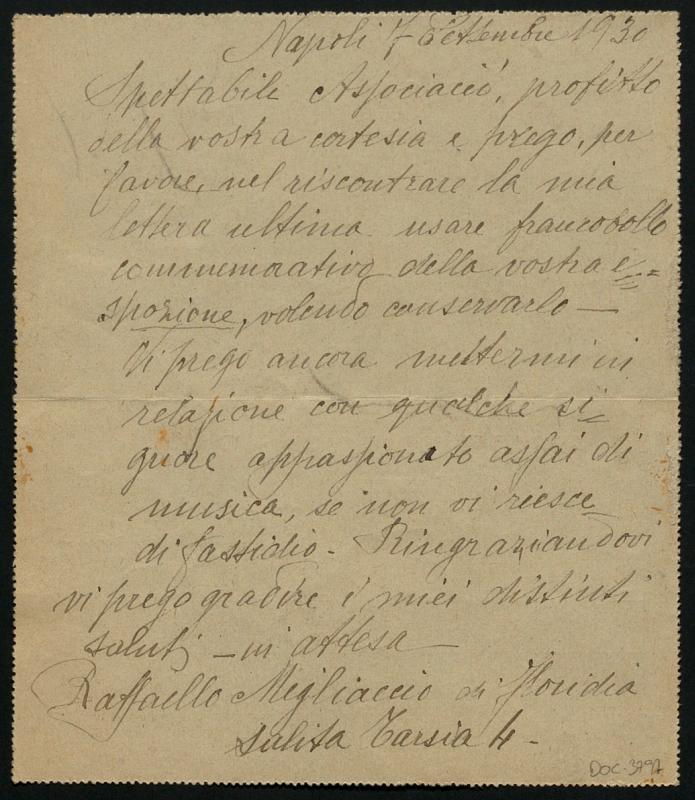 Napoli 7 Settembre 1930
Spettabile Associació, profitto
della vostra cortesia e prego, per
favore, nel riscontrare la mia
lettera ultima usare francobollo
commemorativo della vostra e=
sposizione, volendo conservarlo —
Vi prego ancora mettermi in
relazione con qualche si=
gnore appassionato assai di
musica, se non vi riesce
di fastidio - Ringraziandovi
vi prego gradire i miei distinti
saluti — in attesa —
Raffaello Migliaccio di Floridia
Salita Tarsia 4 -
DOC-3797